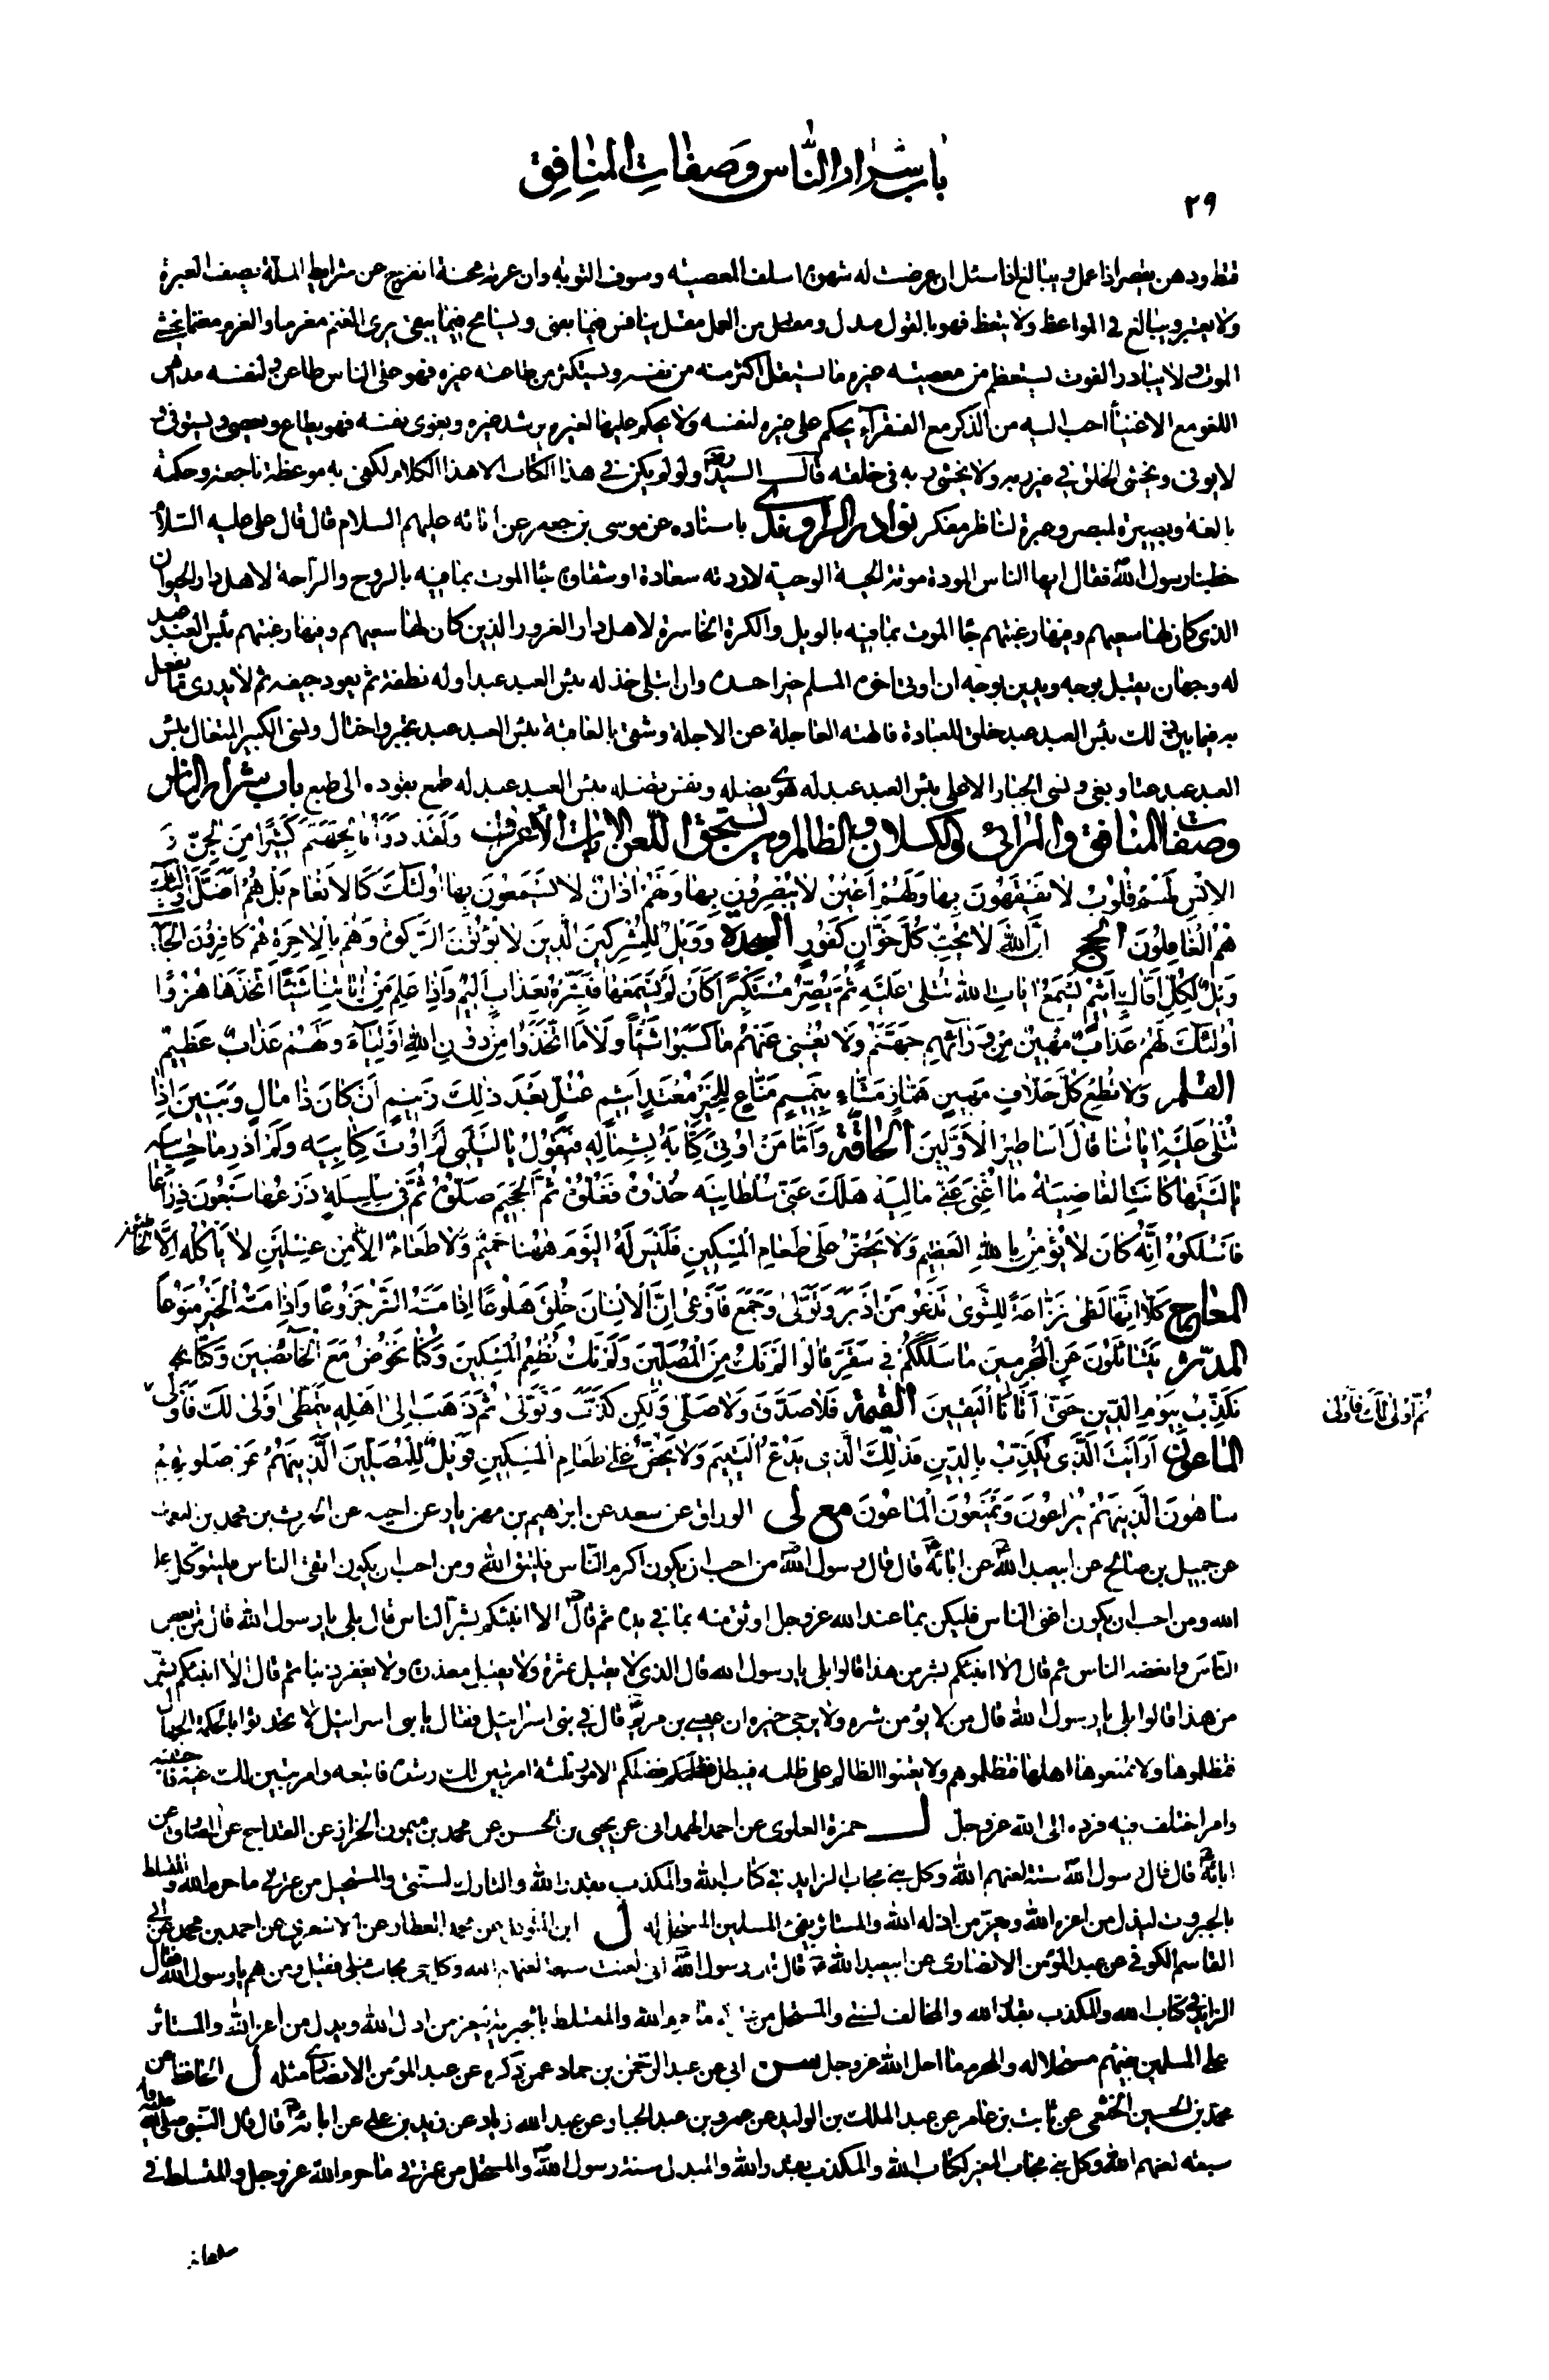 باب شرار الناس وصفات المنافق
٢٩
قنط ووهن يقصر اذا عمل ويبالغ اذا سئل ان عرضت له شهوة اسلف المعصية وسوف التوبة وان عرته محنة انفرج عن شرايط الملة يصف العبرة
ولا يعتبر ويبالغ في المواعظ ولا يتعظ فهو بالقول مدل ومن العمل مقل ينافس فيما يفنى ويسامح فيما يبقى يرى الغنم مغرما والغرم مغنما يخشى
الموت ولا يبادر الفوت يستعظم من معصية غيره ما يستقل اكثر منه من نفسه ويستكثر من طاعته غيره فهو على الناس طاعن ولنفسه مداهن
اللغو مع الاغنياء احب اليه من الذكر مع الفقرآء يحكم على غيره لنفسه ولا يحكم عليها لغيره يرشد غيره ويغوى نفسه فهو يطاع ويعصى ويستوفى و
لا يوفى ويخشى الخلق في غير ربه ولا يخشى ربه في خلقه قال السيد رض ولو لم يكن في هذا الكتاب الا هذا الكلام لكفى به موعظة ناجعة وحكمة
بالغة وبصيرة لمبصر وعبرة لناظر مفكر نوادر الراوندى باسناده عن موسى بن جعفر عن ابائه عليهم السلام قال قال على عليه السلام
خطبنا رسول الله فقال ايها الناس الموتة موتة الوحية الوحية لا ردته سعادة او شقاوة جاء الموت بما فيه بالروح والراحة لاهل دار الحيوان
الذى كان لها سعيهم وفيها رغبتهم جاء الموت بما فيه بالويل والكرة الخاسرة لاهل دار الغرور الذين كان لها سعيهم وفيها رغبتهم بئس العبد عبد
له وجهان يقبل بوجه ويدبر بوجه ان اوتى اخوه المسلم خيرا حسده وان ابتلى خذله بئس العبد عبد اوله نطفة ثم يعود جيفة ثم لا يدرى ما يفعل
به فيما بين ذلك بئس العبد عبد خلق للعبادة فالهته العاجلة عن الاجلة وشقى بالعاقبة بئس العبد عبد تجبر واختال ونسى الكبير المتعال بئس
العبد عبد عتا وبغى ونسى الجبار الاعلى بئس العبد عبد له هوى يضله ونفس تضله بئس العبد عبد له طمع يقوده الى طبع باب شرار الناس
وصفات المنافق والمرائى والكسلان والظالم ومن يستحق اللعن الايات الاعراف وَلَقَد ذرأنا لِجهنم كَثيرًا مِنَ الجِنِّ وَ
الاِنْسِ لَهُمْ قُلُوبٌ لا يَفْقَهُونَ بِها وَلَهُمْ اَعْيُنٌ لا يُبْصِرُونَ بِها وَلَهُمْ اذانٌ لا يَسْمَعُونَ بِها اُولئِكَ كَالاَنْعامِ بَلْ هُمْ اَضَلُّ اُولئِكَ
هُمُ الْغافِلُونَ الحج اِنَّ اللهَ لا يُحِبُّ كُلَّ خَوّانٍ كَفُورٍ السجدة وَوَيْلٌ لِلْمُشْرِكينَ الَّذينَ لا يُؤْتُونَ الزَّكوةَ وَهُمْ بِالاخِرَةِ هُمْ كافِرُونَ الجاثية
وَيْلٌ لِكُلِّ اَفّاكٍ اَثيمٍ يَسْمَعُ اياتِ اللهِ تُتْلى عَلَيْهِ ثُمَّ يُصِرُّ مُسْتَكْبِرًا كَاَنْ لَمْ يَسْمَعْها فَبَشِّرْهُ بِعَذابٍ اَليمٍ وَاِذا عَلِمَ مِنْ اياتِنا شَيْئًا اتَّخَذَها هُزُوًا
اُولئِكَ لَهُمْ عَذابٌ مُهينٌ مِنْ وَرآئِهِمْ جَهَنَّمُ وَلا يُغْنى عَنْهُمْ ما كَسَبُوا شَيْئًا وَلا مَا اتَّخَذُوا مِنْ دُونِ اللهِ اَوْلِيآءَ وَلَهُمْ عَذابٌ عَظيمٌ
القلم وَلا تُطِعْ كُلَّ حَلاّفٍ مَهينٍ هَمّازٍ مَشّاءٍ بِنَميمٍ مَنّاعٍ لِلْخَيْرِ مُعْتَدٍ اَثيمٍ عُتُلٍّ بَعْدَ ذلِكَ زَنيمٍ اَنْ كانَ ذا مالٍ وَبَنينَ اِذا
تُتْلى عَلَيْهِ اياتُنا قالَ اَساطيرُ الْاَوَّلينَ الحاقة وَاَمّا مَنْ اُوتِىَ كِتابَهُ بِشِمالِهِ فَيَقُولُ يا لَيْتَنى لَمْ اُوتَ كِتابِيَه وَلَمْ اَدْرِ ما حِسابِيَه
يا لَيْتَها كانَتِ القاضِيَةَ ما اَغْنى عَنّى مالِيَه هَلَكَ عَنّى سُلْطانِيَه خُذُوهُ فَغُلُّوهُ ثُمَّ الْجَحيمَ صَلُّوهُ ثُمَّ في سِلْسِلَةٍ ذَرْعُها سَبْعُونَ ذِراعًا
فَاسْلُكُوهُ اِنَّهُ كانَ لا يُؤْمِنُ بِاللهِ العَظيمِ وَلا يَحُضُّ عَلى طَعامِ الْمِسْكينِ فَلَيْسَ لَهُ اليَوْمَ ههُنا حَميمٌ وَلا طَعامٌ اِلاّ مِنْ غِسْلينٍ لا يَأْكُلُهُ اِلاَّ الْخاطِئُونَ
المعارج كَلاّ اِنَّها لَظى نَزّاعَةً لِلشَّوى تَدْعُو مَنْ اَدْبَرَ وَتَوَلّى وَجَمَعَ فَاَوْعى اِنَّ الْاِنْسانَ خُلِقَ هَلُوعًا اِذا مَسَّهُ الشَّرُّ جَزُوعًا وَاِذا مَسَّهُ الْخَيْرُ مَنُوعًا
المدّثر يَتَسائَلُونَ عَنِ الْمُجْرِمينَ ما سَلَكَكُمْ في سَقَرَ قالُوا لَمْ نَكُ مِنَ الْمُصَلّينَ وَلَمْ نَكُ نُطْعِمُ الْمِسْكينَ وَكُنّا نَخُوضُ مَعَ الْخآئِضينَ وَكُنّا
نُكَذِّبُ بِيَوْمِ الدّينِ حَتّى اَتانَا الْيَقينُ القيمة فَلا صَدَّقَ وَلا صَلّى وَلكِنْ كَذَّبَ وَتَوَلّى ثُمَّ ذَهَبَ اِلى اَهْلِهِ يَتَمَطّى اَوْلى لَكَ فَاَوْلى
ثُمَّ اَوْلى لَكَ فَاَوْلى
الماعون اَرَاَيْتَ الَّذى يُكَذِّبُ بِالدّينِ فَذلِكَ الَّذى يَدُعُّ الْيَتيمَ وَلا يَحُضُّ عَلى طَعامِ الْمِسْكينِ فَوَيْلٌ لِلْمُصَلّينَ الَّذينَ هُمْ عَنْ صَلوتِهِمْ
ساهُونَ الَّذينَ هُمْ يُراؤُنَ وَيَمْنَعُونَ الْماعُونَ مع لى الوراق عن سعد عن ابراهيم بن مهزيار عن اخيه عن الحارث بن محمد بن النعمان
عن جميل بن صالح عن ابيعبد الله عن ابائه قال قال رسول الله من احب ان يكون اكرم الناس فليتق الله ومن احب ان يكون اتقى الناس فليتوكل على
الله ومن احب ان يكون اغنى الناس فليكن بما عند الله عز وجل اوثق منه بما في يده ثم قال الا انبئكم بشر الناس قال بلى يا رسول الله قال من ابغض
الناس وابغضه الناس ثم قال الا انبئكم بشر من هذا قالوا بلى يا رسول الله قال الذى لا يقيل عثرة ولا يقبل معذرة ولا يغفر ذنبا ثم قال الا انبئكم بشر
من هذا قالوا بلى يا رسول الله قال من لا يؤمن شره ولا يرجى خيره ان عيسى بن مريم قال في بنى اسرائيل فقال يا بنى اسرائيل لا تحدثوا بالحكمة الجهال
فتظلموها ولا تمنعوها اهلها فتظلموهم ولا تعينوا الظالم على ظلمه فيبطل فضلكم الامور ثلثة امر تبين لك رشده فاتبعه وامر تبين لك غيه فاجتنبه
وامر اختلف فيه فرده الى الله عز وجل ل حمزة العلوى عن احمد الهمدانى عن يحيى بن الحسن عن محمد بن ميمون الخزاز عن القداح عن الصادق عن
ابائه قال قال رسول الله ستة لعنهم الله وكل نبى مجاب الزايد في كتاب الله والمكذب بقدر الله والتارك لسنتى والمستحل من عترتى ما حرم الله والمتسلط
بالجبروت ليذل من اعزه الله ويعز من اذله الله والمستاثر بفئ المسلمين المستحل له ل ابن المتوكل عن محمد العطار عن الاشعرى عن احمد بن محمد عن ابى
القاسم الكوفى عن عبد المؤمن الانصارى عن ابيعبد الله قال قال رسول الله انى لعنت سبعة لعنهم الله وكل نبى مجاب قبلى فقيل ومن هم يا رسول الله فقال
الزايد في كتاب الله والمكذب بقدر الله والمخالف لسنتى والمستحل من عترتى ما حرم الله والمتسلط بالجبرية ليعز من اذل الله ويذل من اعز الله والمستاثر
على المسلمين بفيئهم مستحلا له والمحرم ما احل الله عز وجل سن ابى عن عبد الرحمن بن حماد عمن ذكره عن عبد المؤمن الانصارى مثله ل الحافظ عن
محمد بن الحسين الخثعمى عن ثابت بن عامر عن عبد الملك بن الوليد عن عمرو بن عبد الجبار عن عبد الله زياد عن زيد بن على عن ابائه قال قال النبى صلى الله عليه واله
سبعة لعنهم الله وكل نبى مجاب المغير لكتاب الله والمكذب بقدر الله والمبدل سنة رسول الله والمستحل من عترتى ما حرم الله عز وجل والمتسلط في
سلطانه